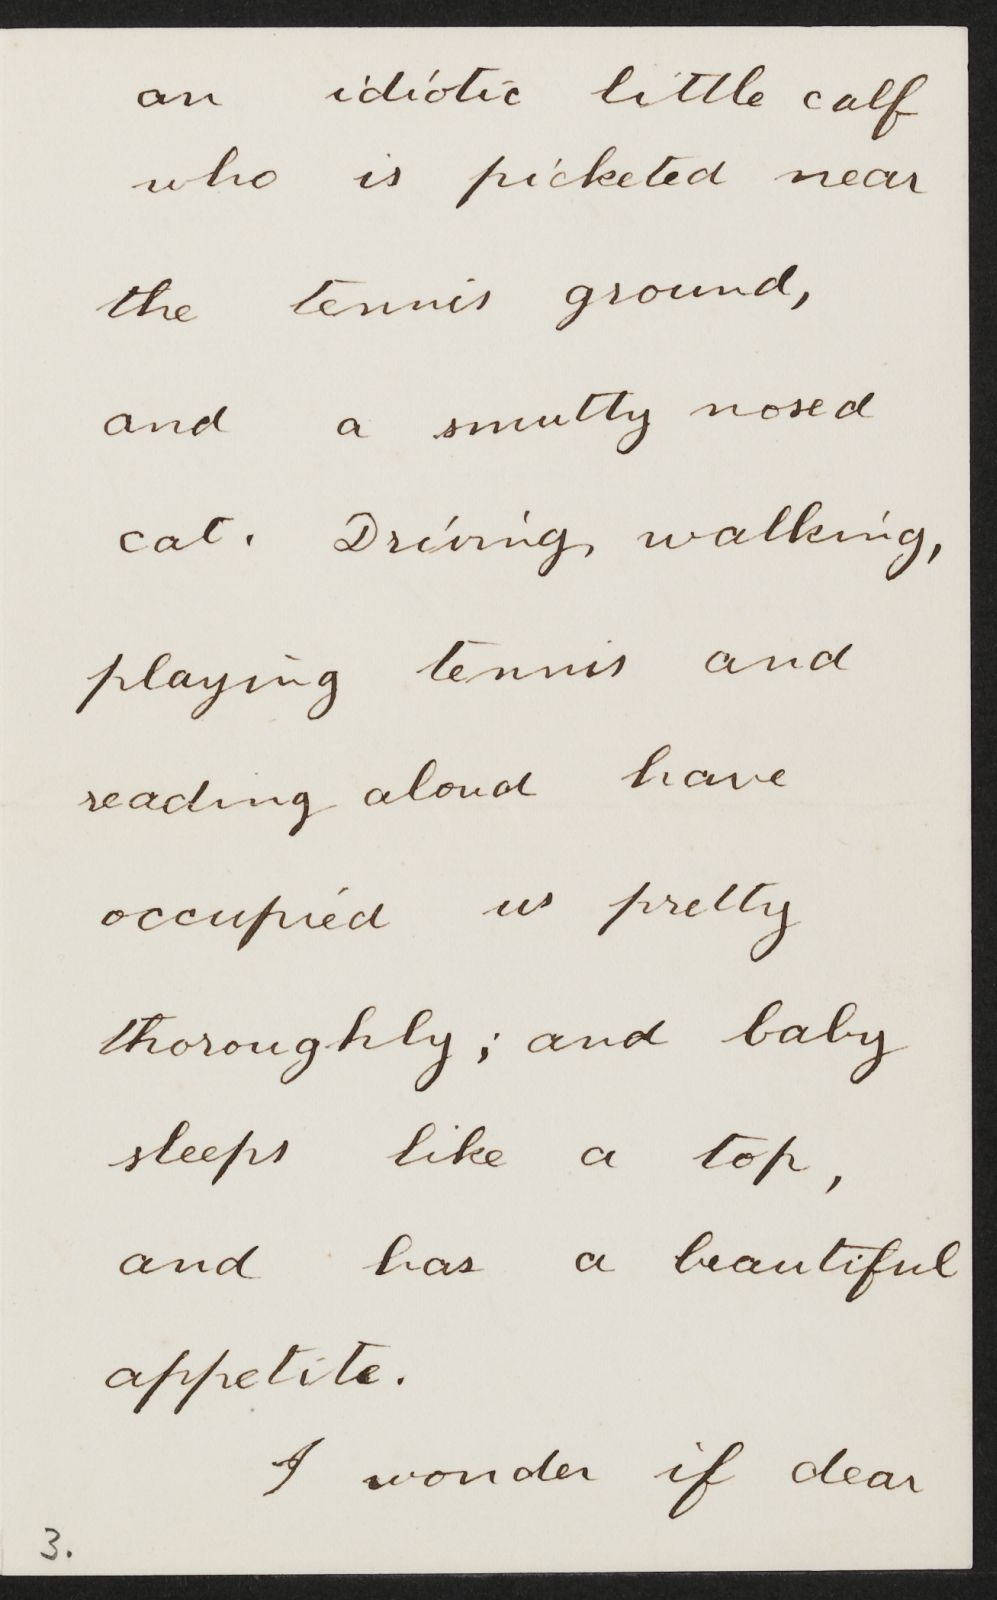 an idiotic little calf
who is picketed near
the tennis ground,
and a smutty nosed
cat. Driving, walking,
playing tennis and
reading aloud have
occupied us pretty
thoroughly; and baby
sleeps like a top,
and has a beautiful
appetite.
I wonder if dear
3.